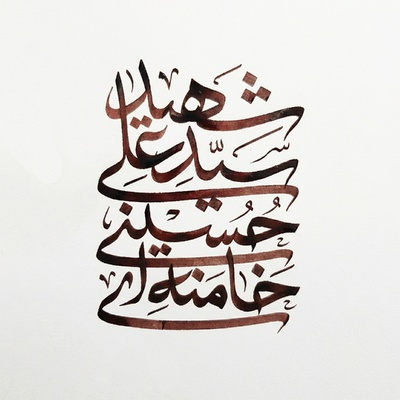 شهید
سیّدِ علیِ
حُسینیِ
خامنه‌ای